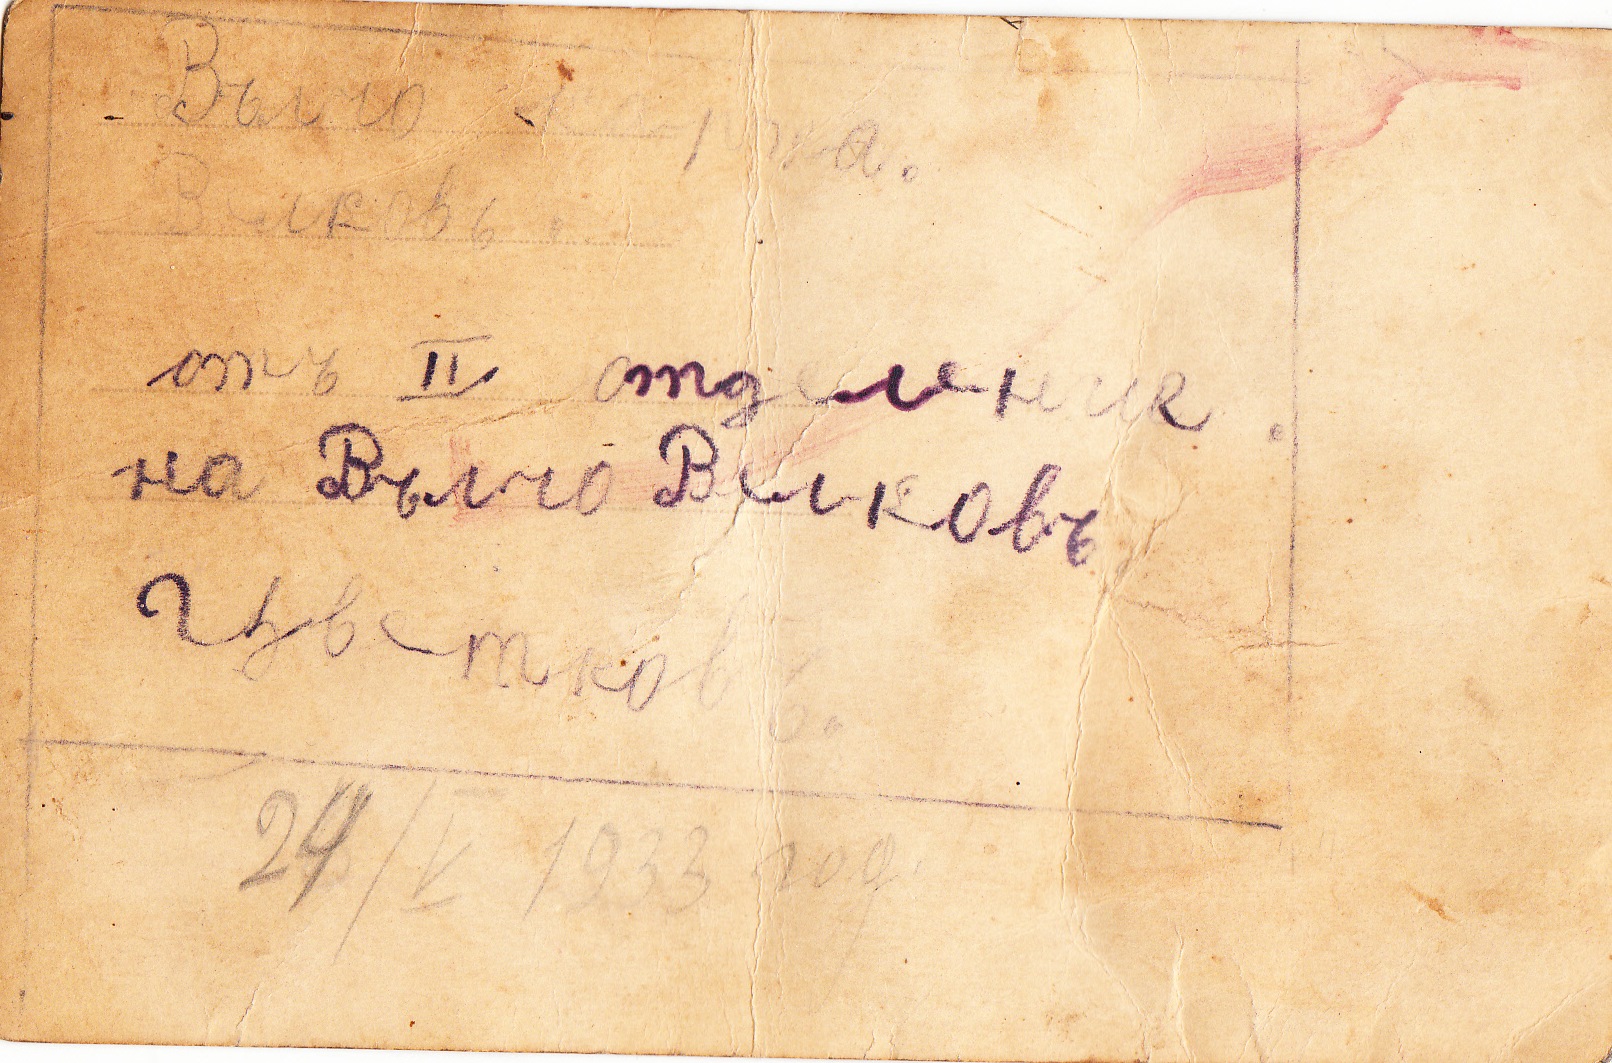 Вълчо
Вълковъ.
отъ II отделение
на Вълчо Вълковъ
Цветковъ.
24/V 1933 год.